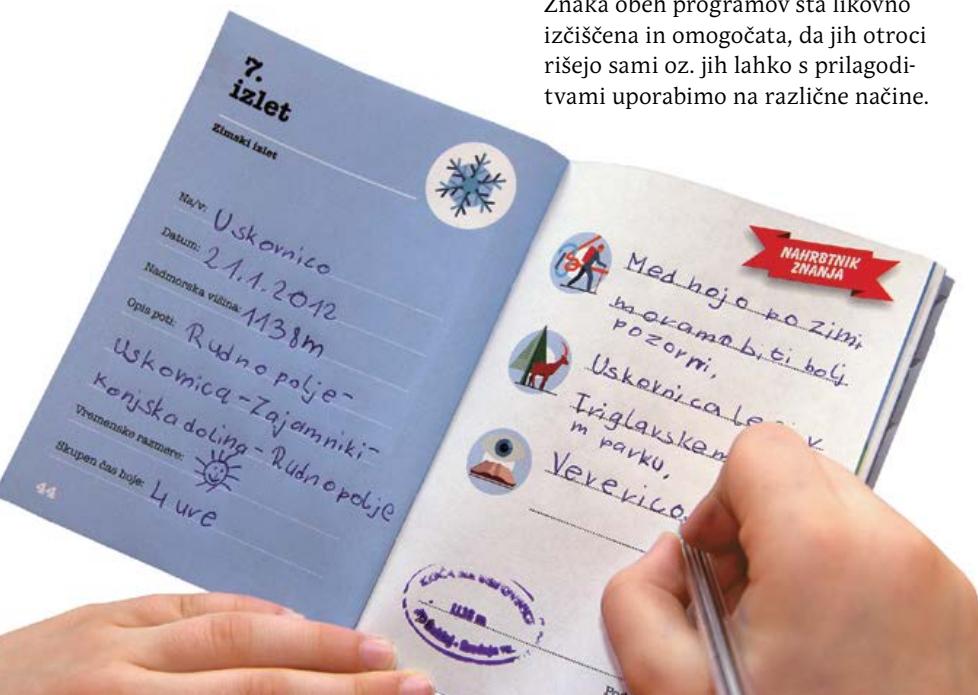 Znaka obeh programov sta likovno
izčiščena in omogočata, da jih otroci
rišejo sami oz. jih lahko s prilagodi-
tvami uporabimo na različne načine.
7.
izlet
Zimski izlet
Na/v: Uskovnico
Datum: 21.1.2012
Nadmorska višina: 1138m
Opis poti: Rudno polje-
Uskovnica-Zajamniki-
Konjska dolina-Rudno polje
Vremenske razmere:
Skupen čas hoje: 4 ure
44
NAHRBTNIK
ZNANJA
Med hojo po zimi
moramo biti bolj
pozorni.
Uskovnica v
Triglavskem
m parku.
Veverico
KOČA NA USKOVNICI
1138 m